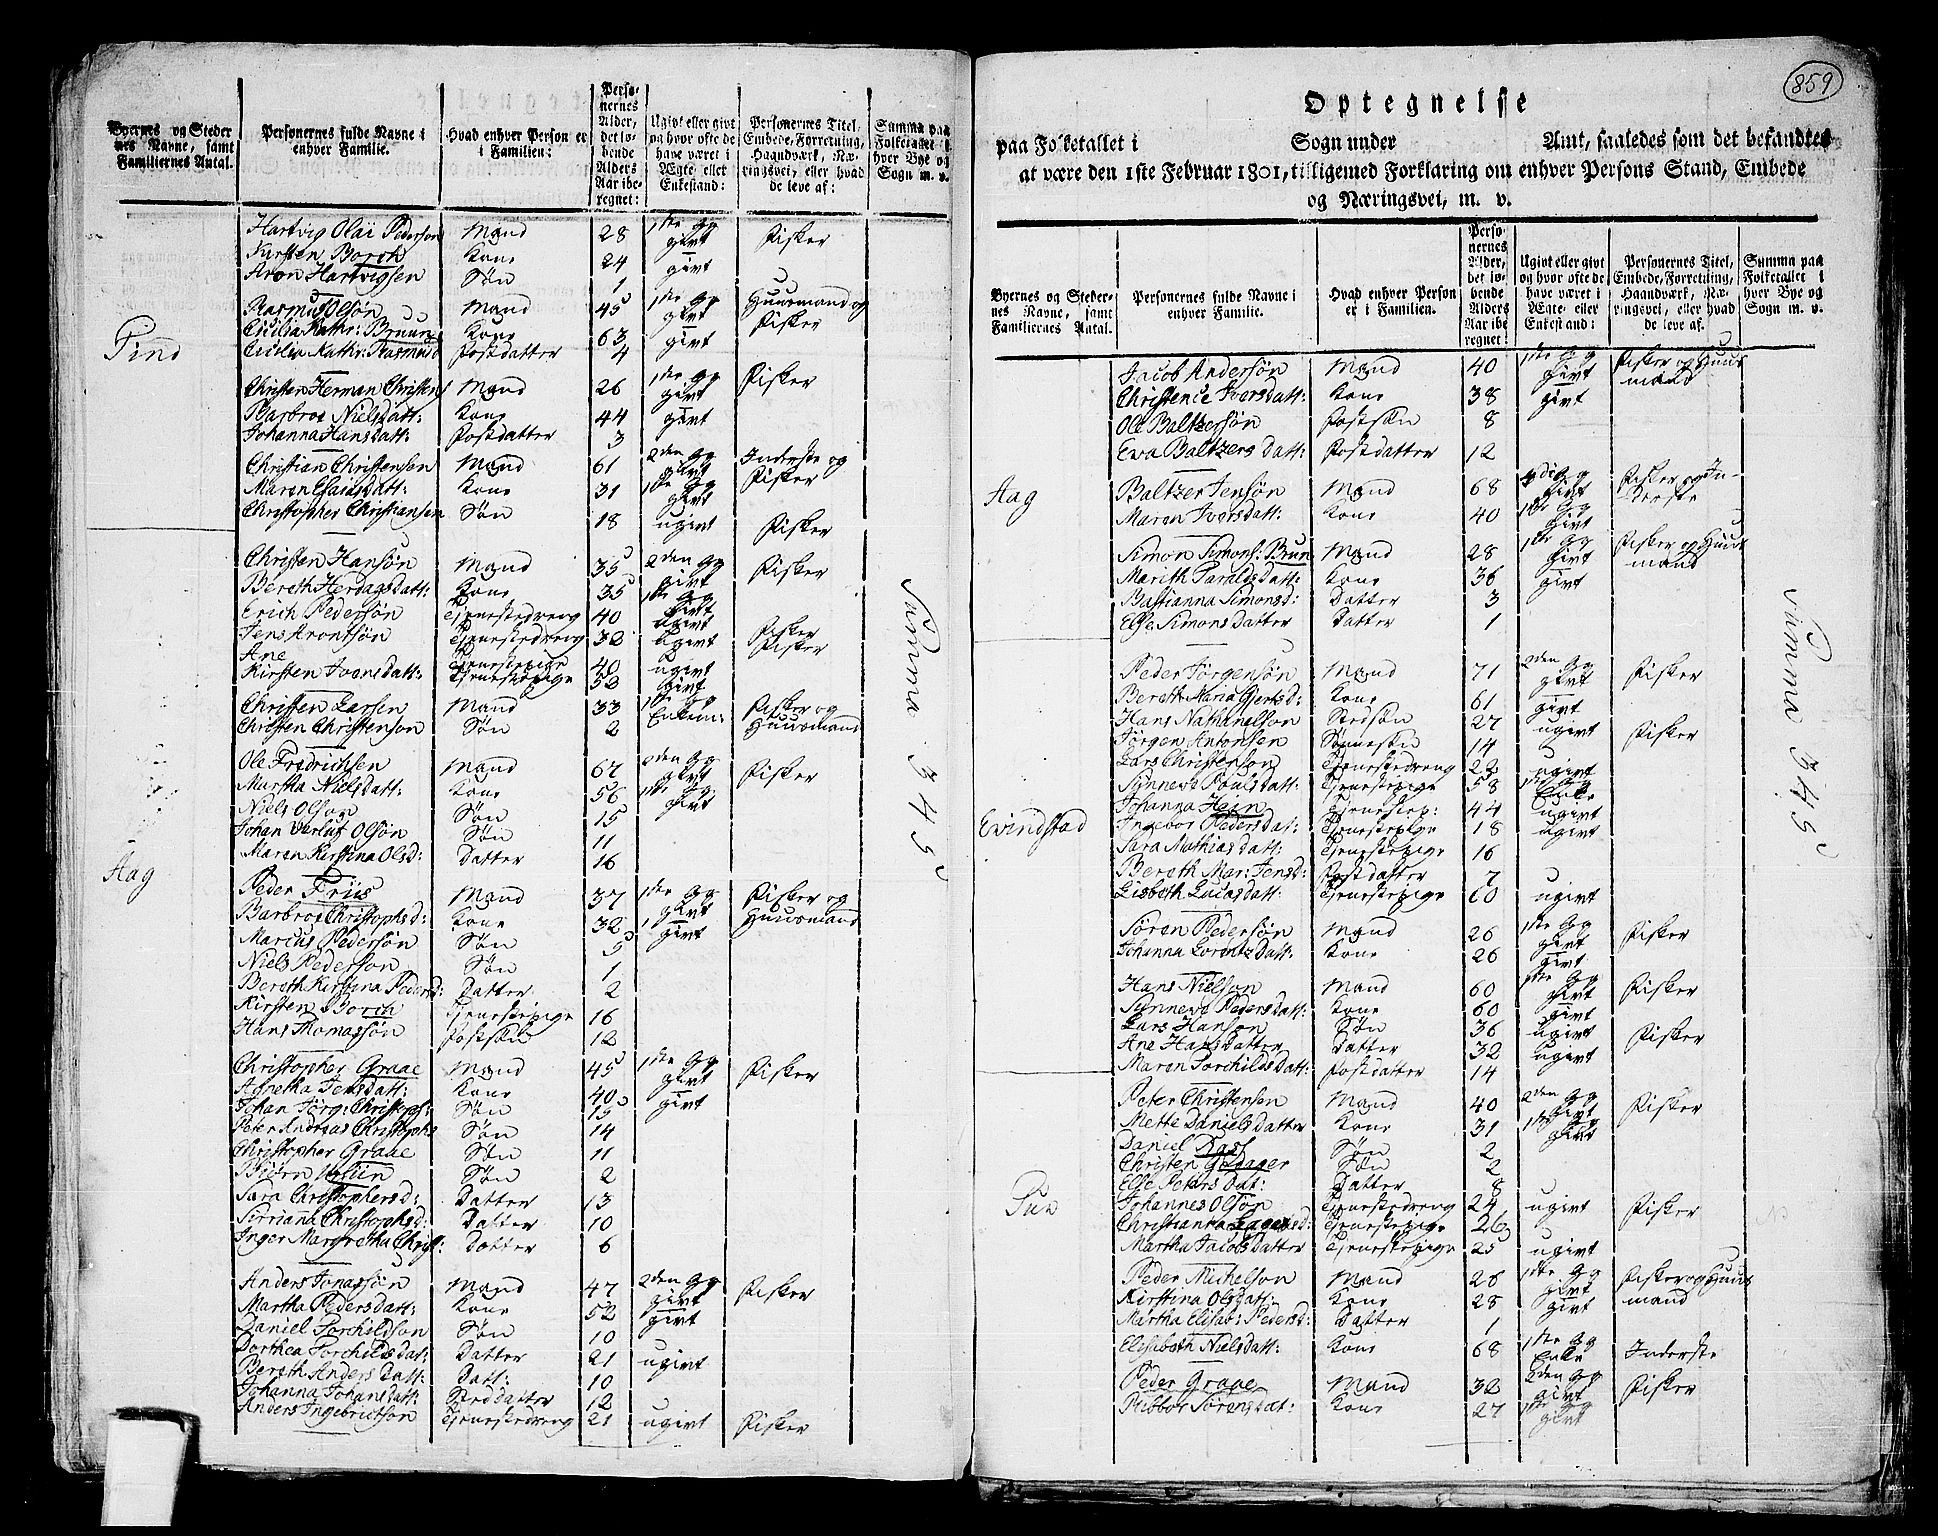 Byernes og Steder
nes Navne, samt
Familiernes Antal.
Personernes fulde Navne i
enhver Familie.
Hvad enhver Person er
i Familien:
Perso-
nernes
Alder,
det lø-
bende
Alders
Aar ibe-
regnet:
Ugivt eller givt
og hvor ofte de
have været i
Ægte eller
Enkestand:
Personernes Titel,
Embede, Forretning,
Haandværk, Næ-
ringsvei, eller hvad
de leve af:
Summa paa
Folketallet i
hver Bye og
Sogn m. v.
Hartvig Olai Pederson Mand 28 1ste Gg givt Fisker
Kirsten Borch Kone 24 givt
Aron Hartvigsen Søn 1
Rasmus Olsøn Mand 45 1ste Gg givt Huusmand og Fisker
Cicilia Kathr: Bruun Kone 63 givt
Cicilia Kathr: Rasmusd Postdatter 4
Tind
Christen Herman Christens Mand 26 1ste Gg givt Fisker
Barbroe Nielsdatt: Kone 44 givt
Johanna Hansdatt: Postdatter 3
Christian Christensen Mand 61 2den Gg givt Inderste og Fisker
Maren Esaiasdatt: Kone 31 1ste Gg givt
Christopher Christiansen Søn 18 ugivt Fisker
Christen Hansøn Mand 35 2den Gg givt Fisker
Bereth Herdagsdatt: Kone 35 1ste Gg givt
Erich Pedersøn Tjenestedreng 40 ugivt Fisker
Jens Arontsøn Tjenestedreng 38 ugivt Fisker
Ane Tjenestepige 40 ugivt
Kirsten Iversdatt: Tjenestepige 58 ugivt
Christen Larsen Mand 33 1ste Gg Enkem: Fisker og Huusmand
Christen Christenson Søn 2
Ole Fredrichsen Mand 67 2den Gg givt Fisker
Martha Nielsdatt: Kone 56 1ste Gg givt
Niels Olson Søn 15
Johan Olsøn Søn 11
Maren Kirstina Olsd: Datter 16
Aag
Peder Friis Mand 37 1ste Gg givt Fisker og Huusmand
Barbroe Christophsd: Kone 32 1 givt
Marcus Pedersøn Søn 5
Niels Pederson Søn 1
Bereth Kirstina Pedersd: Datter 2
Kirsten Borch Tjenestepige 16
Hans Thomassøn Postsøn 12
Christopher Graae Mand 45 1ste Gg givt Fisker
Agnetha Jensdatt: Kone 40 givt
Johan Jörg: Christoph: Søn 15
Peter Andreas Christoph: Søn 14
Christopher Graae Søn 11
Biörn Søn 2
Sara Christophersd: Datter 13
Sirrianna Christophsd: Datter 10
Inger Margretha Christ: Datter 6
Anders Jonassøn Mand 47 2den Gg givt Fisker
Martha Pedersdatt: Kone 52 givt
Daniel Torchildson Søn 10
Dorthea Torchildsdat: Datter 21 ugivt
Bereth Anders Datt: Datt: 10
Johanna Johansdatt: Steddatter 12
Anders Ingebrictson Tjenestedreng 21 ugivt Fisker
Summa 345
859
Optegnelse
paa Folketallet i Sogn under Amt, saaledes som det befandtes
at være den 1ste Februar 1801, tilligemed Forklaring om enhver Persons Stand, Embede
og Næringsvei, m. v.
Byernes og Steder-
nes Navne, samt
Familiernes Antal.
Personernes fulde Navne i
enhver Familie.
Hvad enhver Person
er i Familien.
Perso-
nernes
Alder,
det lø-
bende
Alders
Aar ibe
regnet:
Ugivt eller givt
og hvor ofte de
have været i
Ægte eller
Enkestand:
Personernes Titel,
Embede, Forretning,
Haandværk, Næ-
ringsvei, eller hvad
de leve af.
Summa paa
Folketallet i
hver Bye og
Sogn m. v.
Jacob Andersøn Mand 40 1ste Gg givt Fisker og Huus mand
Christence Iversdatt: Kone 38 givt
Ole Baltzersøn Postsøn 8
Ewa Baltzers datt: Postdatter 12
Aag
Baltzer Jensøn Mand 68 Gg givt Fisker og In- derste
Maren Iversdatt: Kone 40 1ste Gg givt
Simon Simons: Brun Mand 28 1ste Gg givt Fisker og Huus mand
Marith Taraldsdatt: Kone 36 givt
Bastianna Simonsd: Datter 3
Else Simons Datter Datter 1
Peder Jörgensøn Mand 71 2den Gg givt Fisker
Bereth Maria Gjertsd: Kone 61 givt
Hans Nathanelson Stedsøn 27 ugivt Fisker
Jörgen Antonsen Sønnesøn 14
Lars Christenson Tjenestedreng 23 ugivt
Synneve Poulsdatt: Tjenestepige 58 1ste Gg Enke
Johanna Hein Tjenestep: 44 ugivt
Evindstad
Ingebor Pedersdat: Tjenestepige 18 ugivt
Sara Mathiasdatt: Tjenestepige 16
Bereth Mar: Jensd: Postdatter 7
Lisbeth Lucasdatt: Tjenestepige 60 ugivt
Sören Pedersön Mand 26 1ste Gg givt Fisker
Johanna Lorentzdatt: Kone 26 givt
Hans Nielson Mand 60 1ste Gg givt Fisker
Sunneve Pedersdatt: Kone 60 givt
Lars Hanson Søn 36 ugivt Fisker
Ane Hansdatter Datter 32 ugivt
Maren Torchildsdatt: Postdatter 14
Peter Christensen Mand 40 2den Gg givt Fisker
Mette Danielsdatter Kone 31 1ste Gg givt
Daniel Søn 2
Christen Godager Søn 2
Else Peters Dat: Datter 8
Johannes Olsøn Tjenestedreng 24 ugivt Fisker
Christianna Tjenestepige 26
Martha Jacobsdatter Tjenestepige 25 ugivt
Peder Michelson Mand 26 1ste Gg givt Fisker og Huus mand
Kirstina Olsdatt: Kone 28 givt
Martha Elisab: Pedersd: Datter 1
Elisabeth Nielsdatt: Kone 68 1ste Gg Enke Inderste
Peder Graae Mand 32 2den Gg givt Fisker
Ribbor Sörensdat: Kone 27 1ste Gg givt
Summa 345